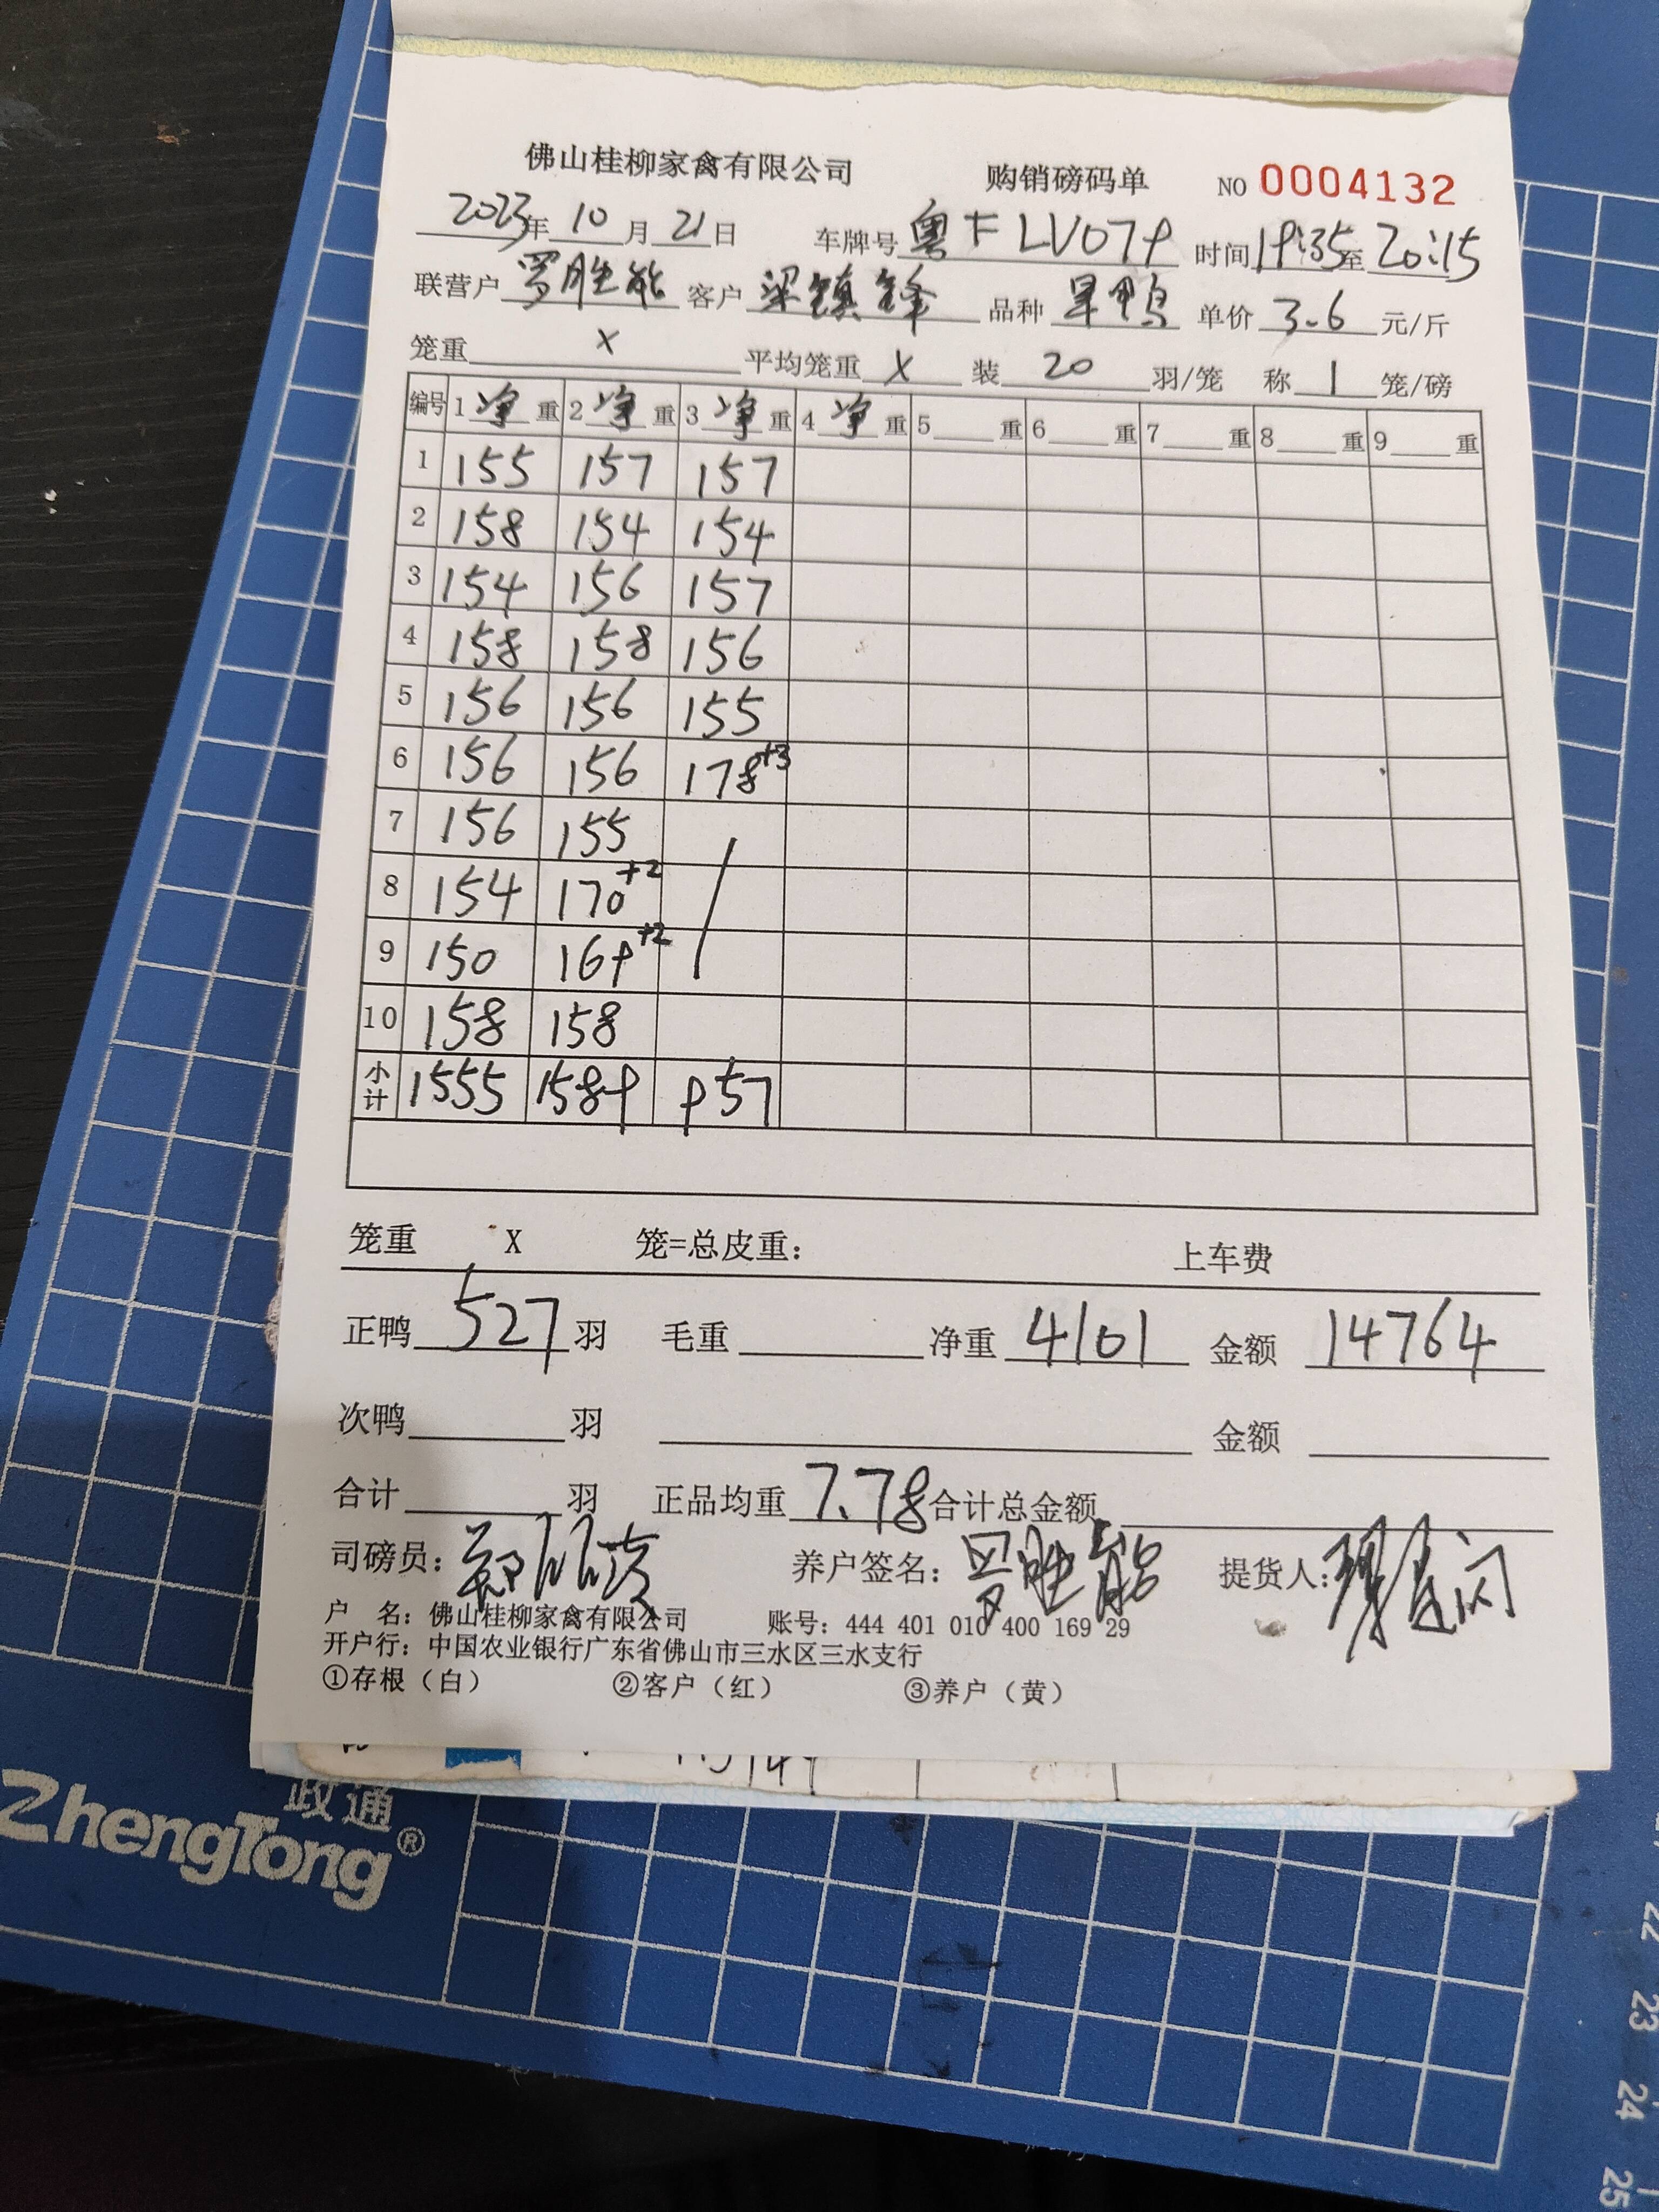 佛山桂柳家禽有限公司 购销磅码单 NO 0004132
2023年 10 月 21 日 车牌号 粤F LV079 时间 19:35 至 20:15
联营户 罗胜能 客户 梁镇锋 品种 旱鸭 单价 3.6 元/斤
笼重 X 平均笼重 X 装 20 羽/笼 称 1 笼/磅
编号 1 净 重 2 净 重 3 净 重 4 净 重 5 重 6 重 7 重 8 重 9 重
1 155 157 157
2 158 154 154
3 154 156 157
4 158 158 156
5 156 156 155
6 156 156 178+3
7 156 155
8 154 170+2
9 150 169+2
10 158 158
小计 1555 1589 957
笼重 X 笼=总皮重: 上车费
正鸭 527 羽 毛重 净重 4101 金额 14764
次鸭 羽 金额
合计 羽 正品均重 7.78 合计总金额
司磅员: 养户签名: 罗胜能 提货人:
户 名: 佛山桂柳家禽有限公司 账号: 444 401 010 400 169 29
开户行: 中国农业银行广东省佛山市三水区三水支行
①存根（白） ②客户（红） ③养户（黄）
政通
ZhengTong®
22
23
24
25